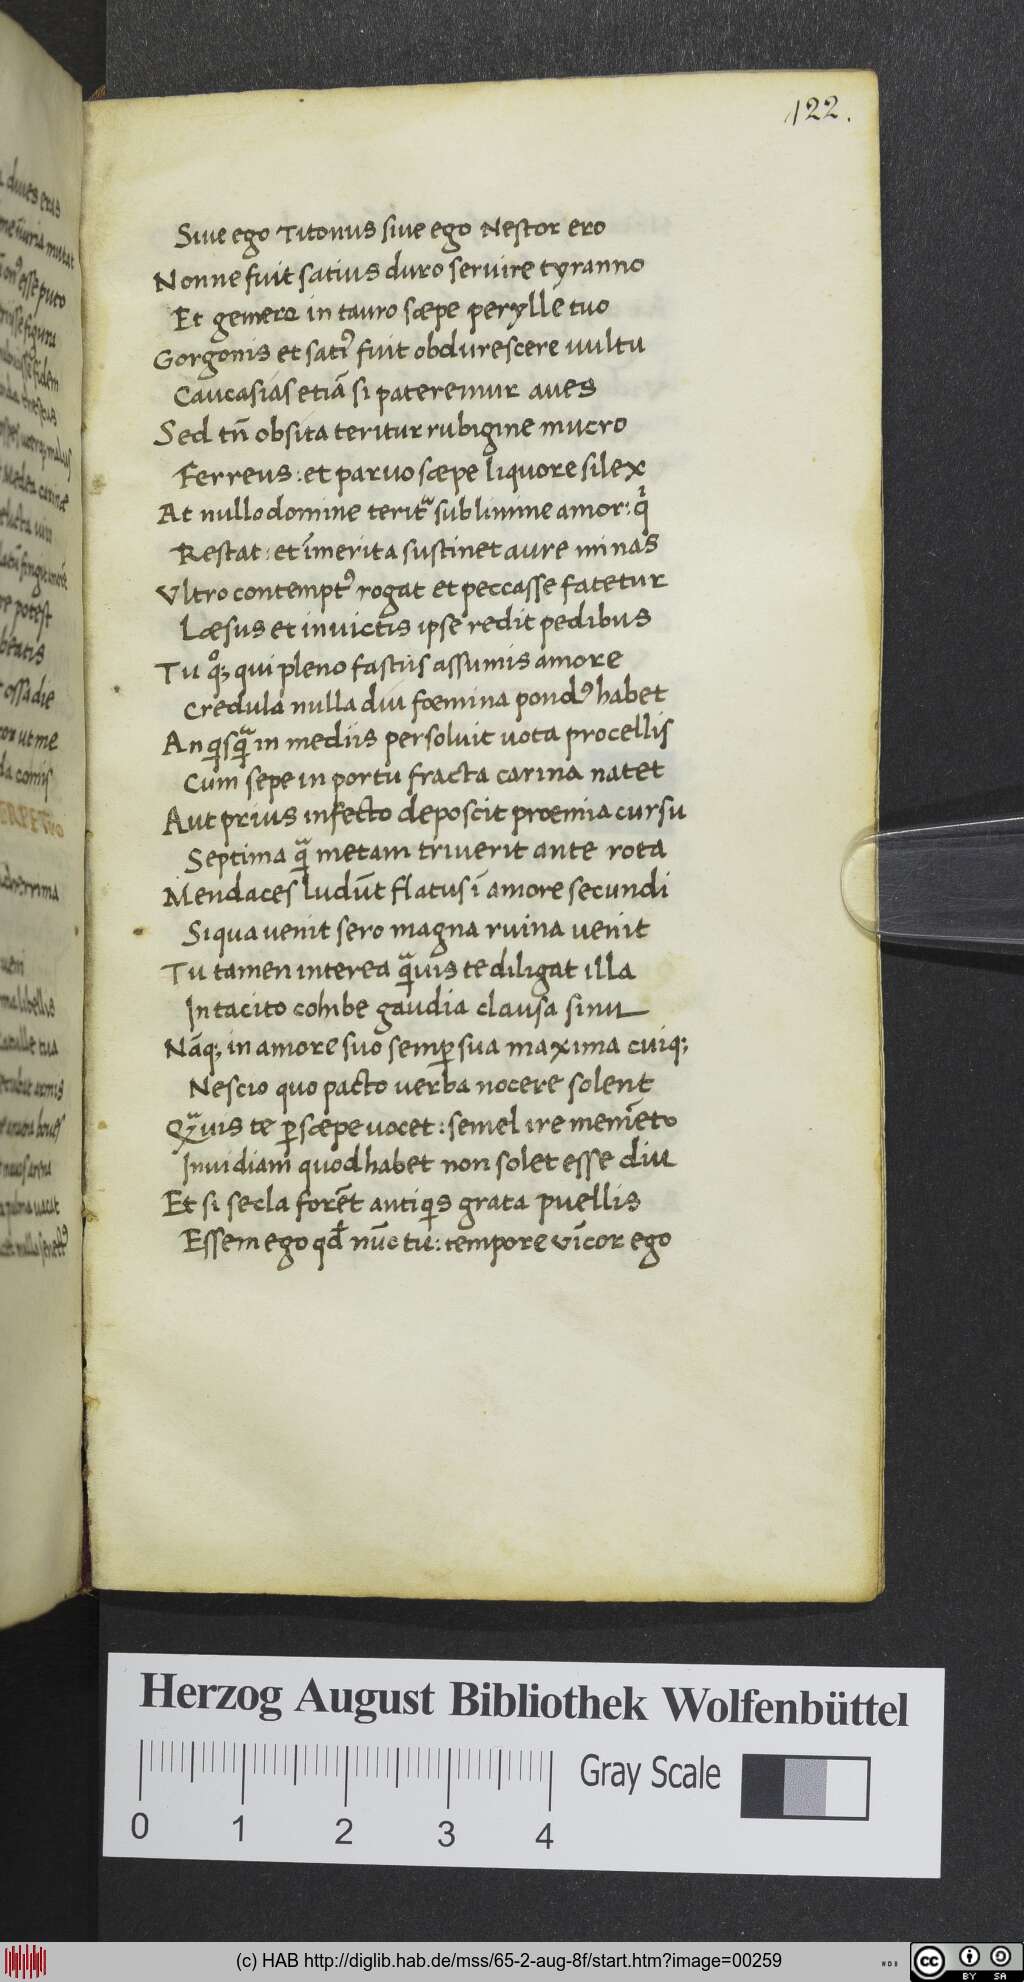 122.
Siue ego Titonus siue ego Nestor ero
Nonne fuit satius duro seruire tyranno
Et gemere in tauro sæpe perylle tuo
Gorgonis et satiꝰ fuit obdurescere uultu
Caucasias etiā si pateremur aues
Sed tn̄ obsita teritur rubigine mucro
Ferreus: et paruo sæpe liquore silex
At nullo domine teritᷓ sub limine amor: qͥ
Restat: et īmerita sustinet aure minas
Vltro contemptꝰ rogat et peccasse fatetur
Læsus et inuictis ipse redit pedibus
Tu qͦꝫ qui pleno fastus assumis amore
Credula nulla diu fœmina pondꝰ habet
An qisqᷓ in mediis persoluit uota procellis
Cum sepe in portu fracta carina natet
Aut prius infecto deposcit prœmia cursu
Septima qᷓ metam triuerit ante rota
Mendaces ludūt flatus ī amore secundi
Siqua uenit sero magna ruina uenit
Tu tamen interea qᷓuis te diligat illa
In tacito cohibe gaudia clausa sinu
Nāqꝫ in amore suo semꝑ sua maxima cuiqꝫ
Nescio quo pacto uerba nocere solent
Qᷓuis te ꝑsæpe uocet: semel ire memēto
Inuidiam quod habet non solet esse diu
Et si secla forēt antiqis grata puellis
Essem ego qđ nūc tu: tempore uīcor ego
diues eras
mutat
esse puto
figura
fidem
Medea carinæ
potest
beatis
ossa die
ut me
comis
libellis
tua
armis
boues
palma uacat
Herzog August Bibliothek Wolfenbüttel
0 1 2 3 4
Gray Scale
(c) HAB http://diglib.hab.de/mss/65-2-aug-8f/start.htm?image=00259
cc BY SA